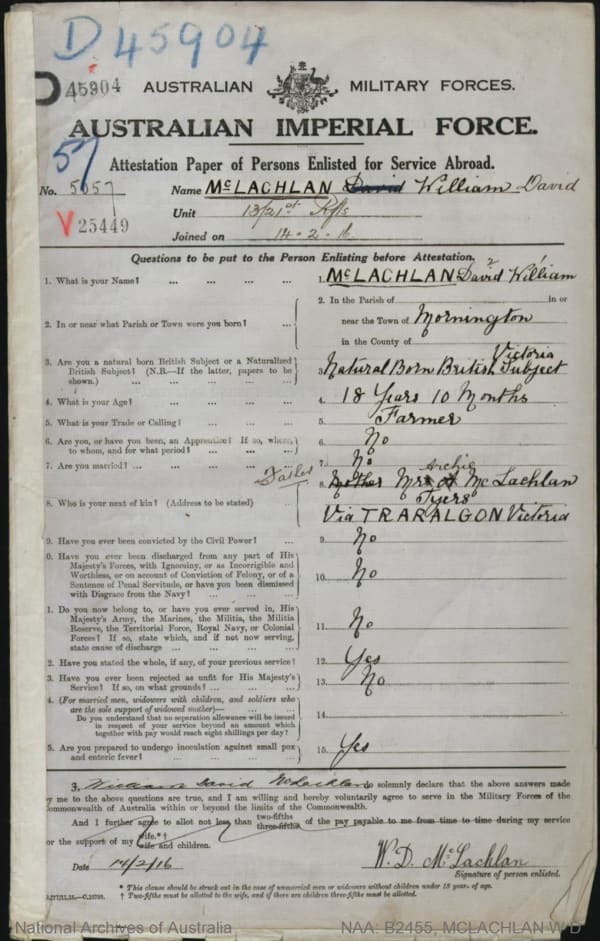 D45904
D 45904
AUSTRALIAN MILITARY FORCES.
AUSTRALIAN IMPERIAL FORCE.
57
Attestation Paper of Persons Enlisted for Service Abroad.
No. 5057 Name McLACHLAN David William David
Unit 13/21st Rfts
V 25449
Joined on 14.2.16
Questions to be put to the Person Enlisting before Attestation.
1. What is your Name? ... ... ... ... 1. McLACHLAN David William
2. In or near what Parish or Town were you born? ... 2. In the Parish of in or
near the Town of Mornington
in the County of Victoria
3. Are you a natural born British Subject or a Naturalized
British Subject? (N.B.—If the latter, papers to be
shown.) ... ... ... ... 3 Natural Born British Subject
4. What is your Age? ... ... ... ... 4. 18 Years 10 Months
5. What is your Trade or Calling? ... ... ... 5. Farmer
6. Are you, or have you been, an Apprentice? If so, where,
to whom, and for what period? ... ... ... 6. No
7. Are you married? ... ... ... ... 7. No
8. Who is your next of kin? (Address to be stated) ... Father 8. Mother Mr Archie McLachlan
Tyers
Via TRARALGON Victoria
9. Have you ever been convicted by the Civil Power? ... 9. No
0. Have you ever been discharged from any part of His
Majesty's Forces, with Ignominy, or as Incorrigible and
Worthless, or on account of Conviction of Felony, or of a
Sentence of Penal Servitude, or have you been dismissed
with Disgrace from the Navy? ... ... ... 10. No
1. Do you now belong to, or have you ever served in, His
Majesty's Army, the Marines, the Militia, the Militia
Reserve, the Territorial Force, Royal Navy, or Colonial
Forces? If so, state which, and if not now serving,
state cause of discharge ... ... ... 11. No
2. Have you stated the whole, if any, of your previous service? 12. Yes
3. Have you ever been rejected as unfit for His Majesty's
Service? If so, on what grounds? ... ... ... 13. No
4. (For married men, widowers with children, and soldiers who
are the sole support of widowed mother)— ... ...
Do you understand that no separation allowance will be issued
in respect of your service beyond an amount which
together with pay would reach eight shillings per day? 14.
5. Are you prepared to undergo inoculation against small pox
and enteric fever? ... ... ... ... 15. Yes
3, William David McLachlan do solemnly declare that the above answers made
by me to the above questions are true, and I am willing and hereby voluntarily agree to serve in the Military Forces of the
Commonwealth of Australia within or beyond the limits of the Commonwealth.
And I further agree to allot not less than two-fifths three-fifths of the pay payable to me from time to time during my service
for the support of my wife.*† wife and children.
Date 14/2/16 W. D. McLachlan
Signature of person enlisted.
* This clause should be struck out in the case of unmarried men or widowers without children under 18 years of age.
† Two-fifths must be allotted to the wife, and if there are children three-fifths must be allotted.
National Archives of Australia NAA: B2455, MCLACHLAN W D